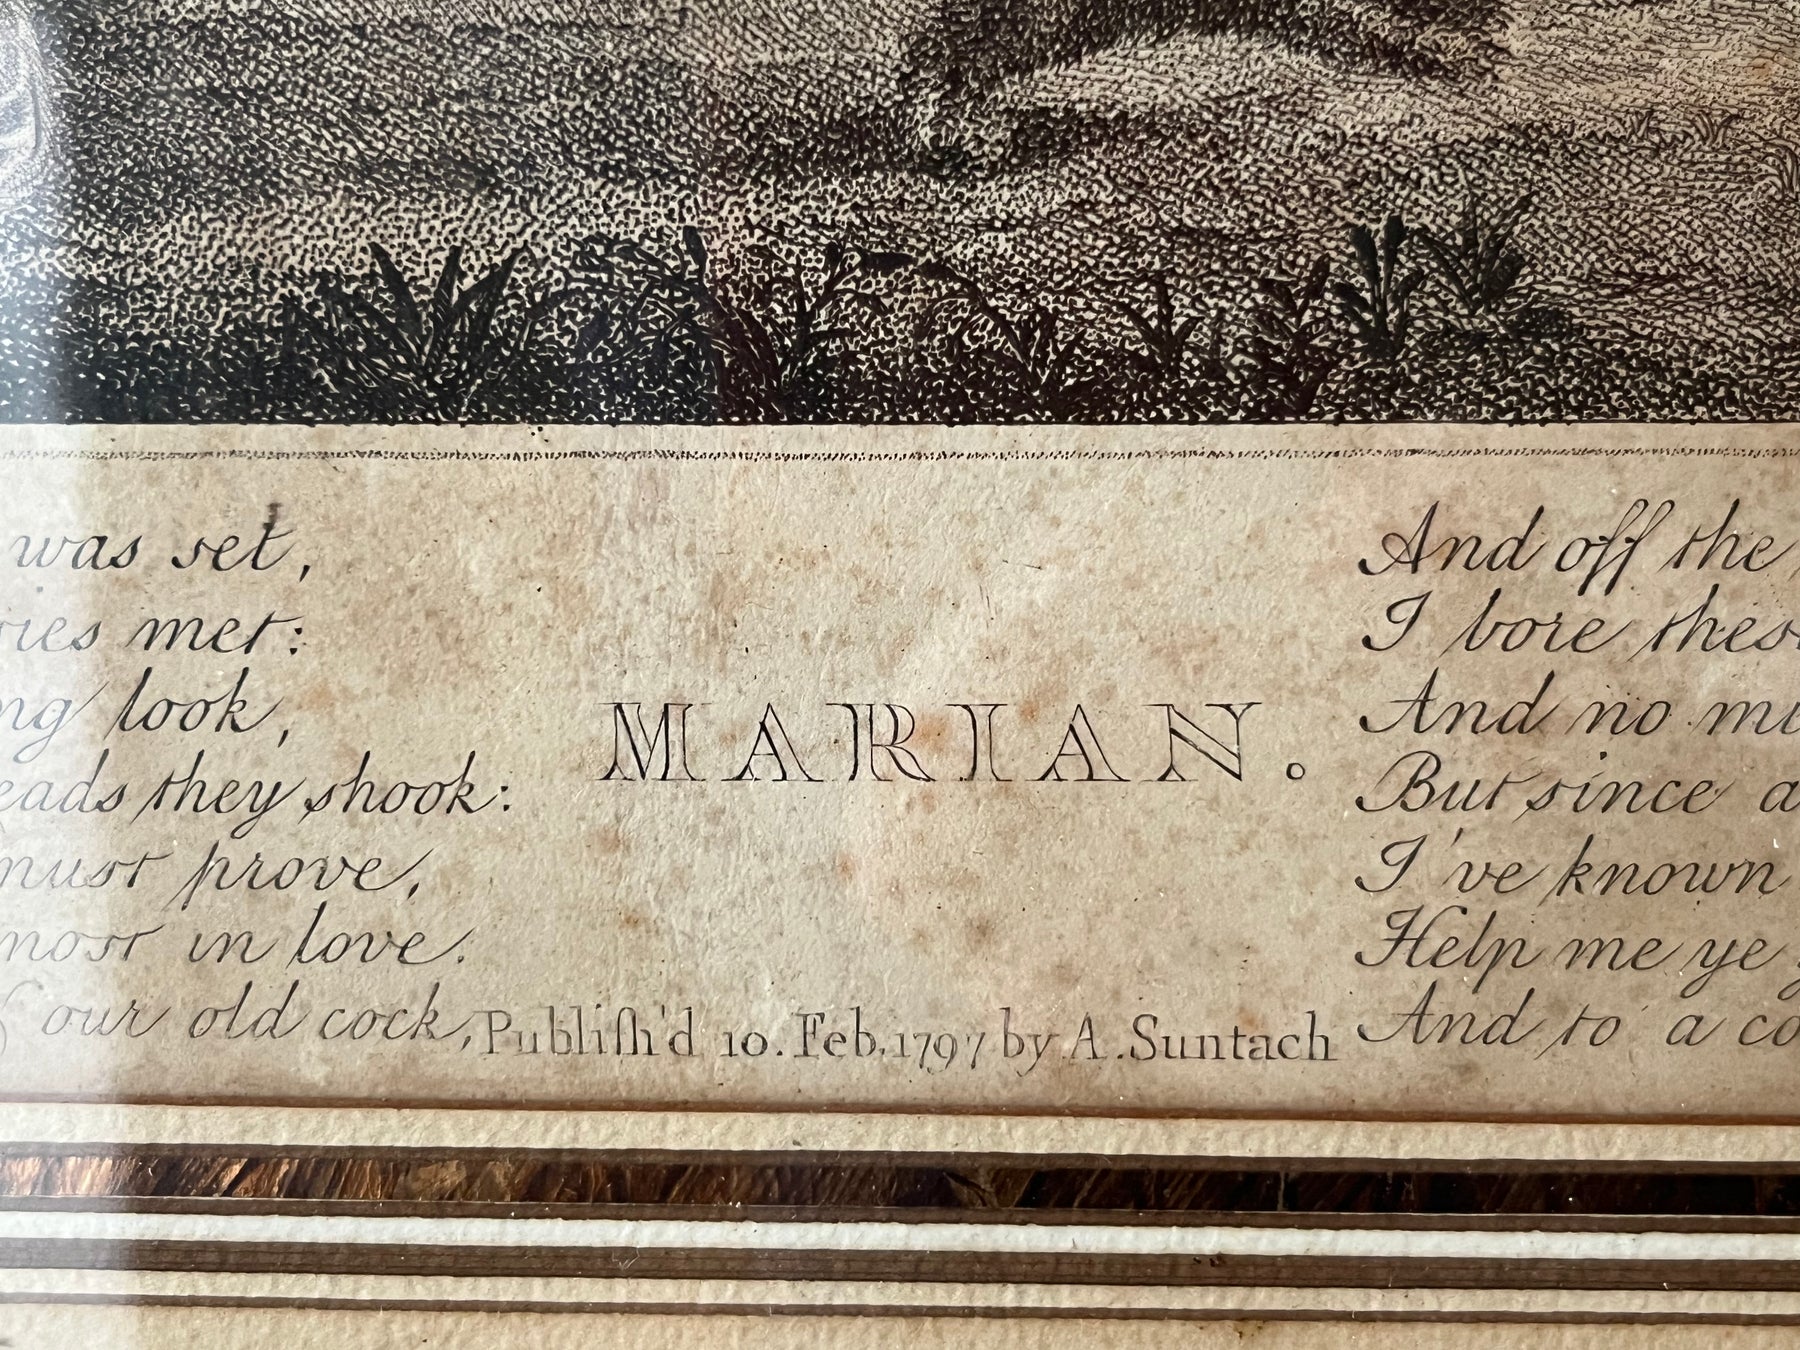 was set,
met:
look,
they shook:
must prove,
most in love.
our old cock,
MARIAN.
Publiſh'd 10. Feb. 1797 by A. Suntach
And off the
I bore these
And no
But since
I've known
Help me ye
And to a